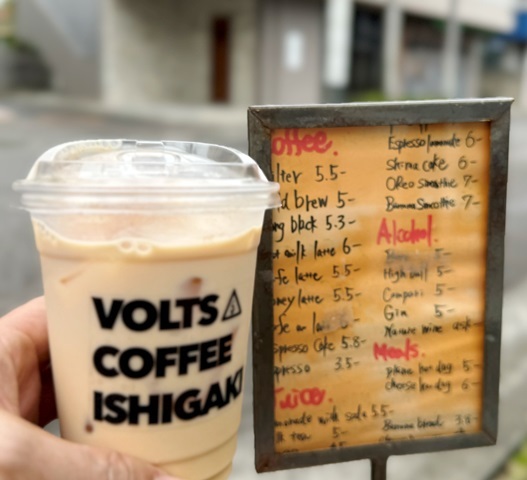 VOLTS
COFFEE
ISHIGAKI
offee.
lter 5.5-
d brew 5-
5.3-
latte 6-
fe latte 5.5-
ney latte 5.5-
5.8-
presso 3.5-
Juice.
onade with soda 5.5-
tea 5-
Espresso lemonade 6-
6-
Oreo smoothie 7-
Banana Smoothie 7-
Alcohol.
5-
High ball 5-
Campari 5-
Gin 5-
Nature wine ask-
Meals.
hot dog 5-
Cheese hot dog 6-
Banana bread 3.8-